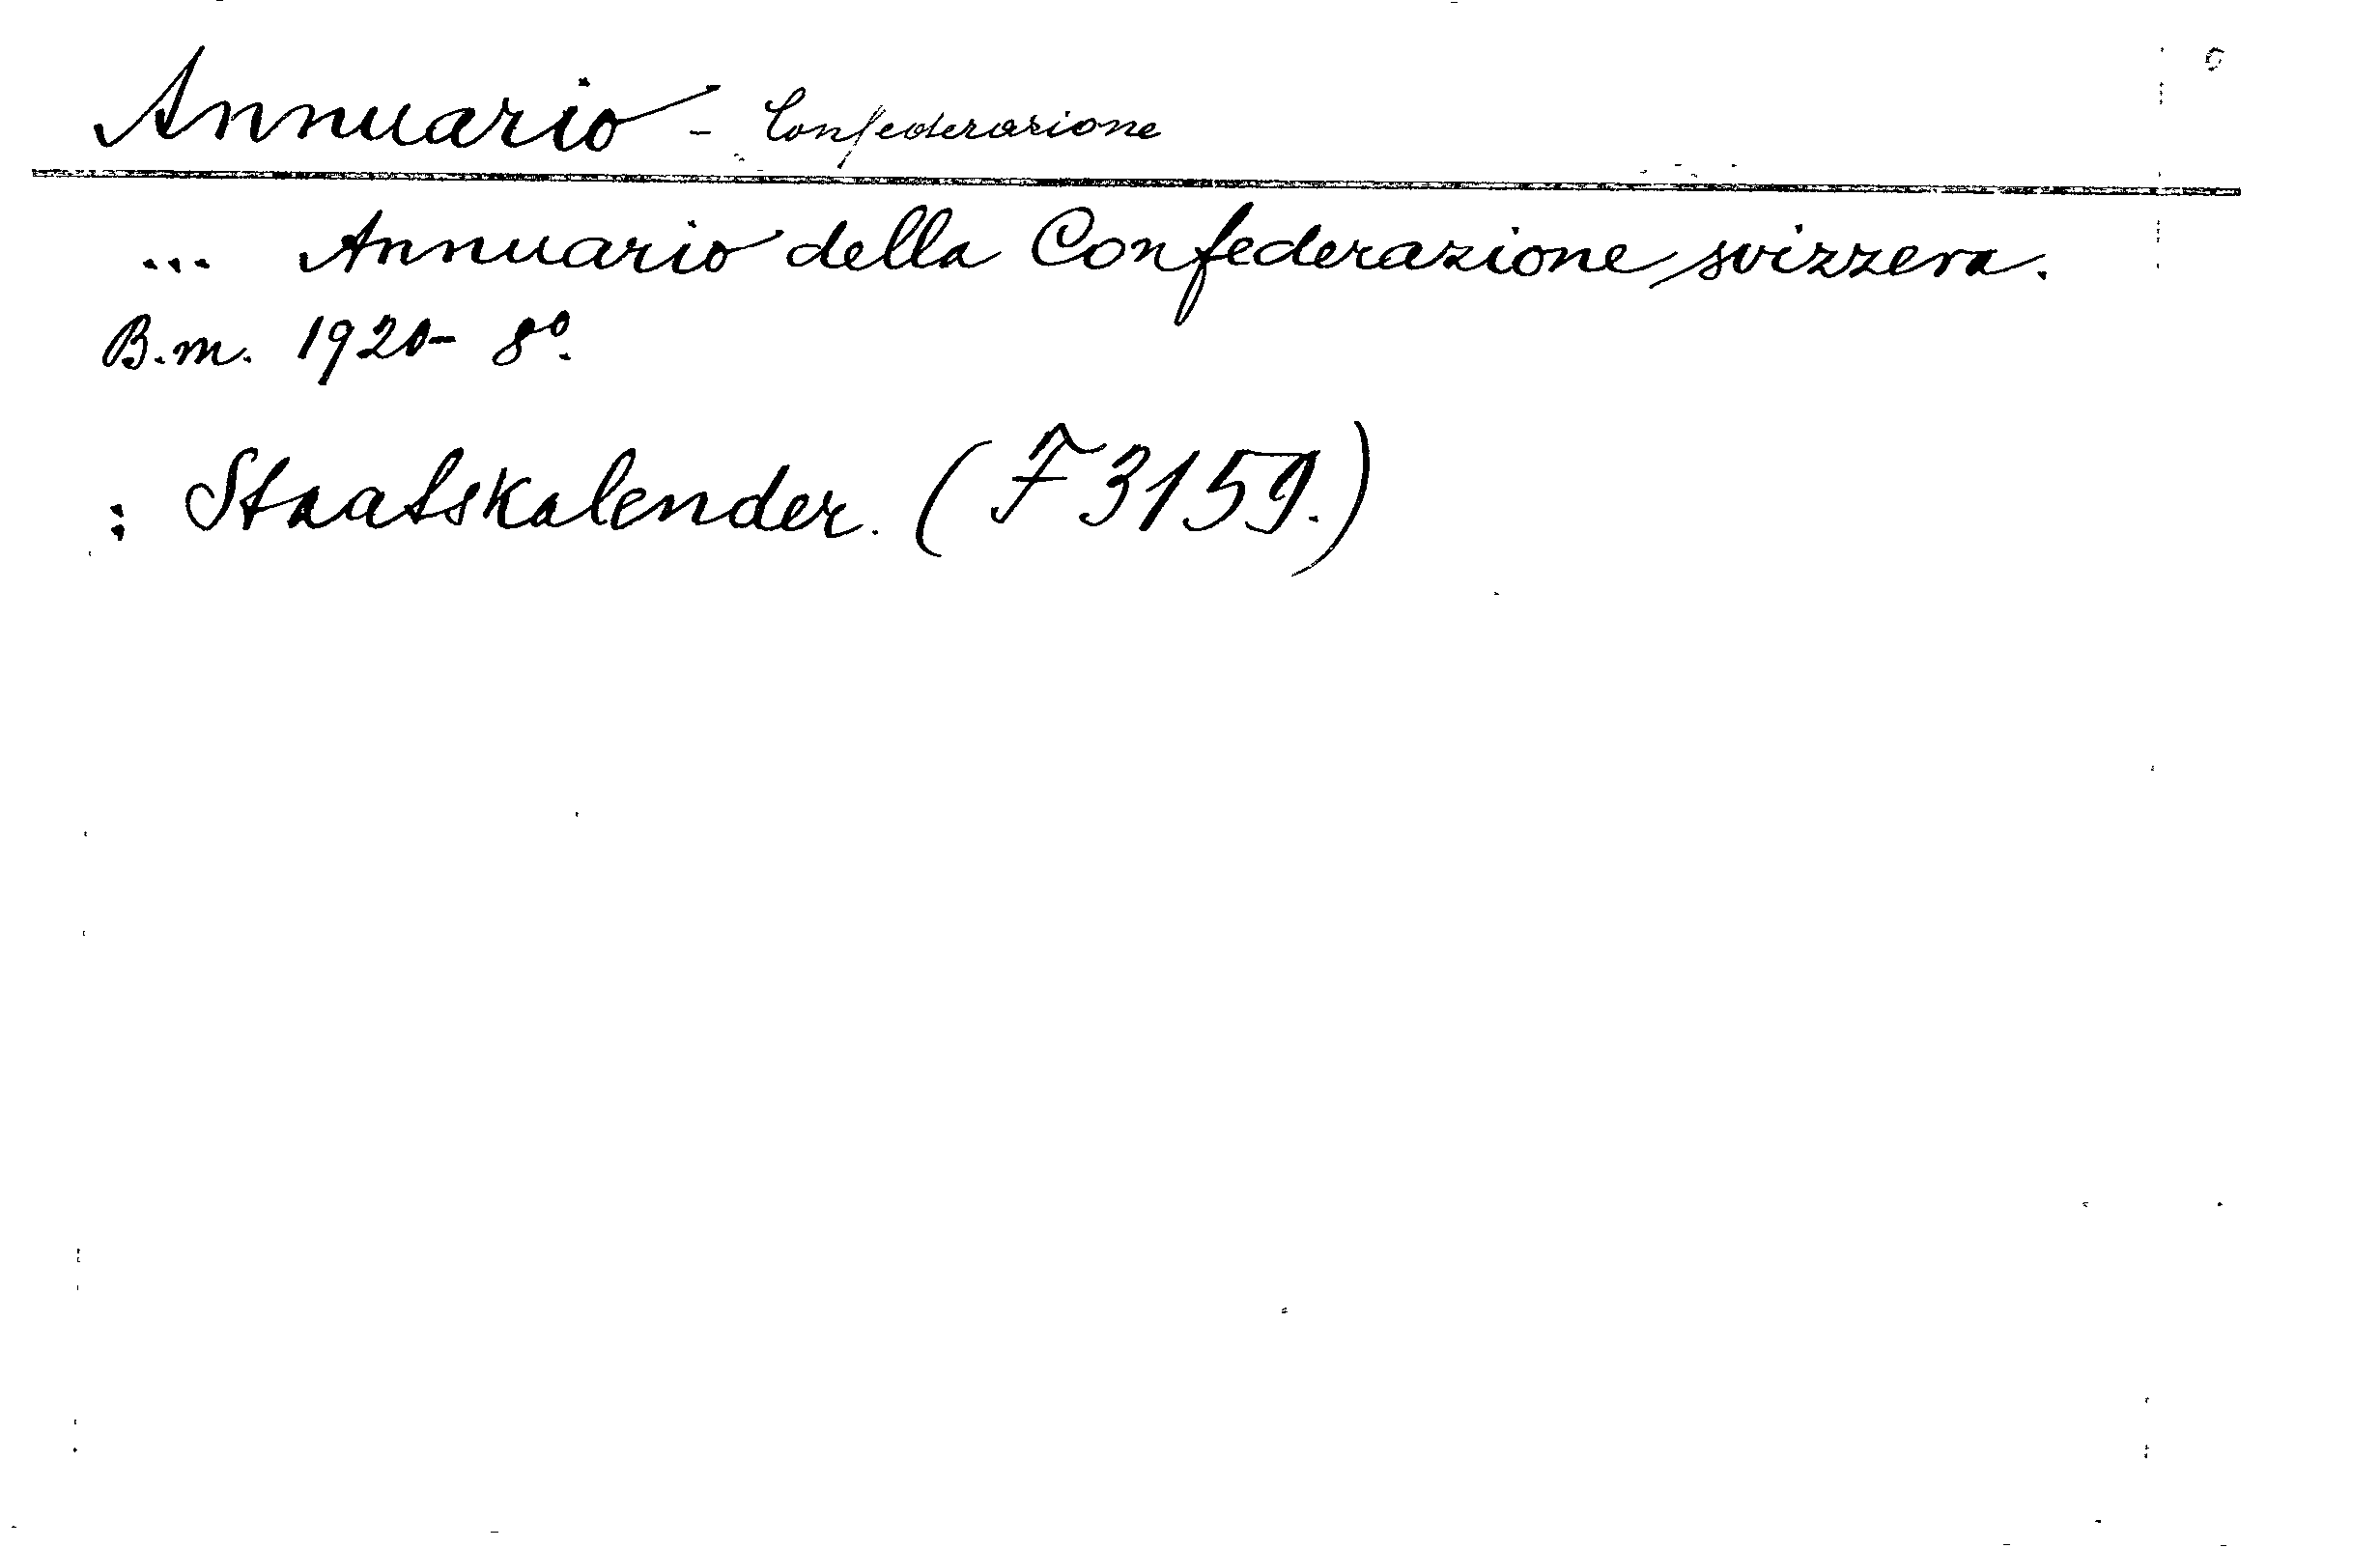 Annuario - Confederazione
... Annuario della Confederazione svizzera.
B.m. 1920- 8º.
: Staatskalender. (F 3159.)